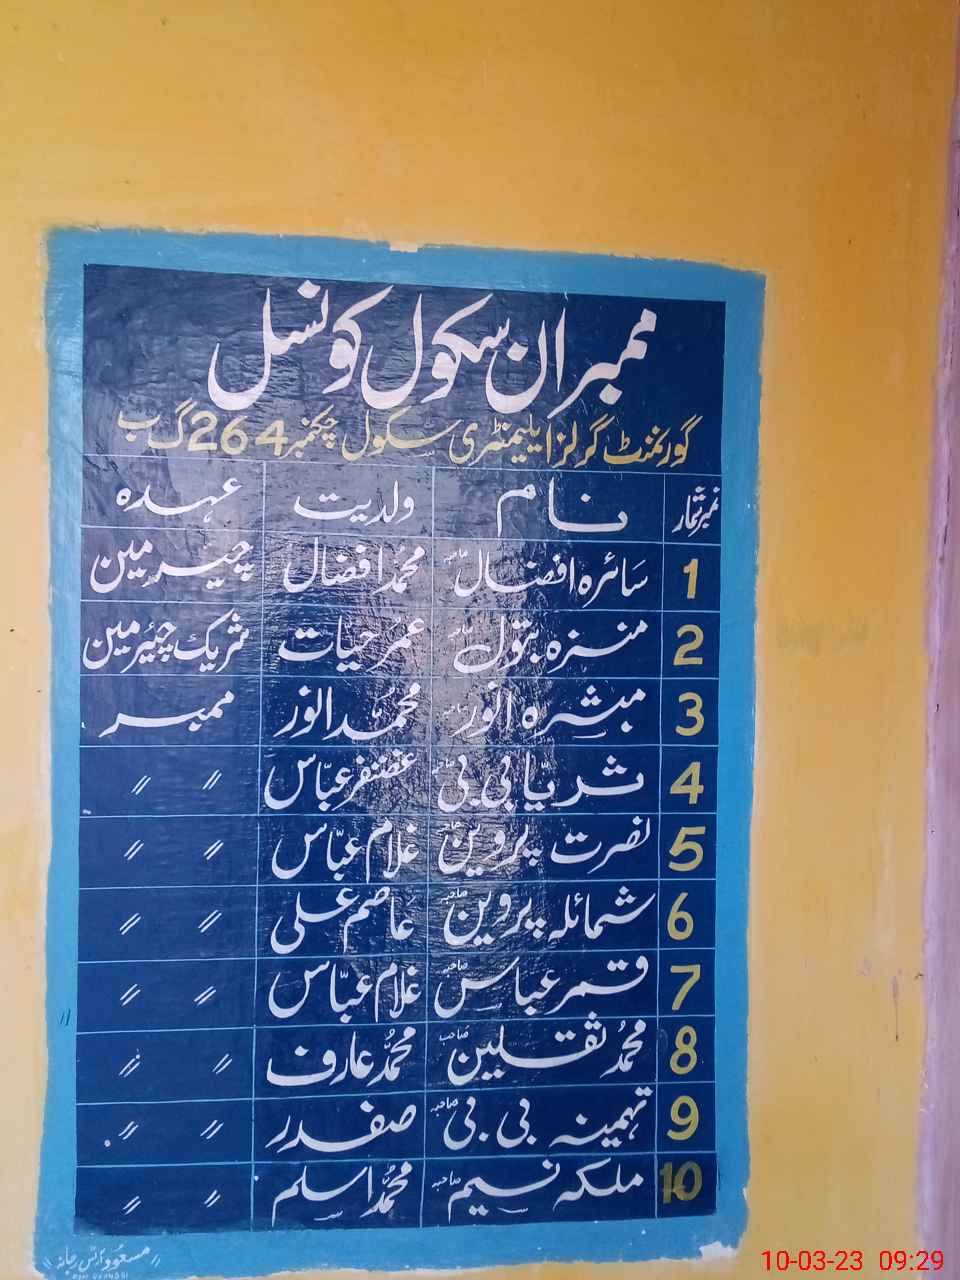 ممبران سکول کونسل
گورنمنٹ گرلز ایلیمنٹری سکول چکنمبر 264 گ ب
نمبر شمار نام ولدیت عہدہ
1 سائرہ افضال صاحبہ محمد افضال چیئرمین
2 منزہ بتول صاحبہ عمر حیات شریک چیئرمین
3 مبشرہ انور صاحبہ محمد انور ممبر
4 ثریا بی بی صاحبہ غضنفر عباس 〃 〃
5 نصرت پروین صاحبہ غلام عباس 〃 〃
6 شمائلہ پروین صاحبہ عاصم علی 〃 〃
7 قمر عباس صاحب غلام عباس 〃 〃
8 محمد ثقلین صاحب محمد عارف 〃 〃
9 تہمینہ بی بی صاحبہ صفدر 〃 〃
10 ملکہ نسیم صاحبہ محمد اسلم 〃 〃
مسعود آرٹس رجانہ
10-03-23 09:29